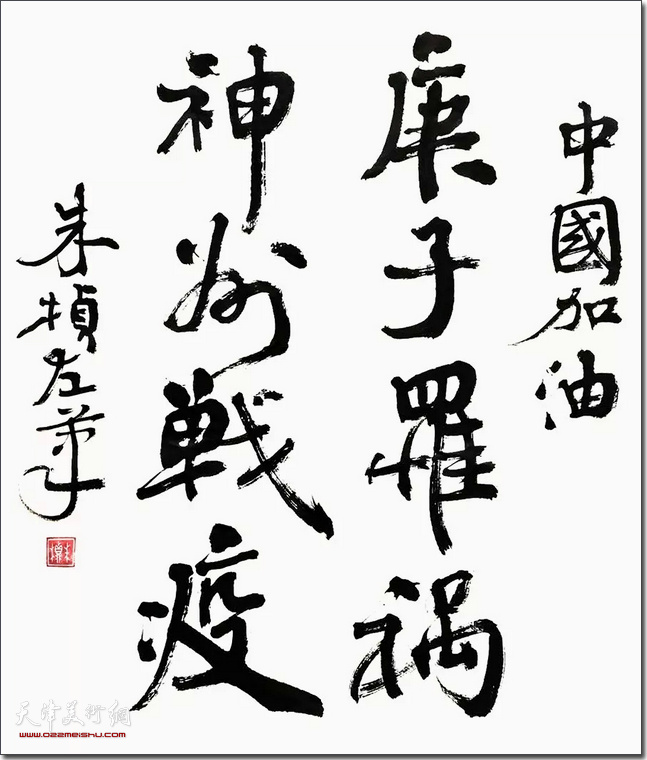 中國加油
庚子罹祸
神州戦疫
朱楨左筆
天津美术網
www.022meishu.com